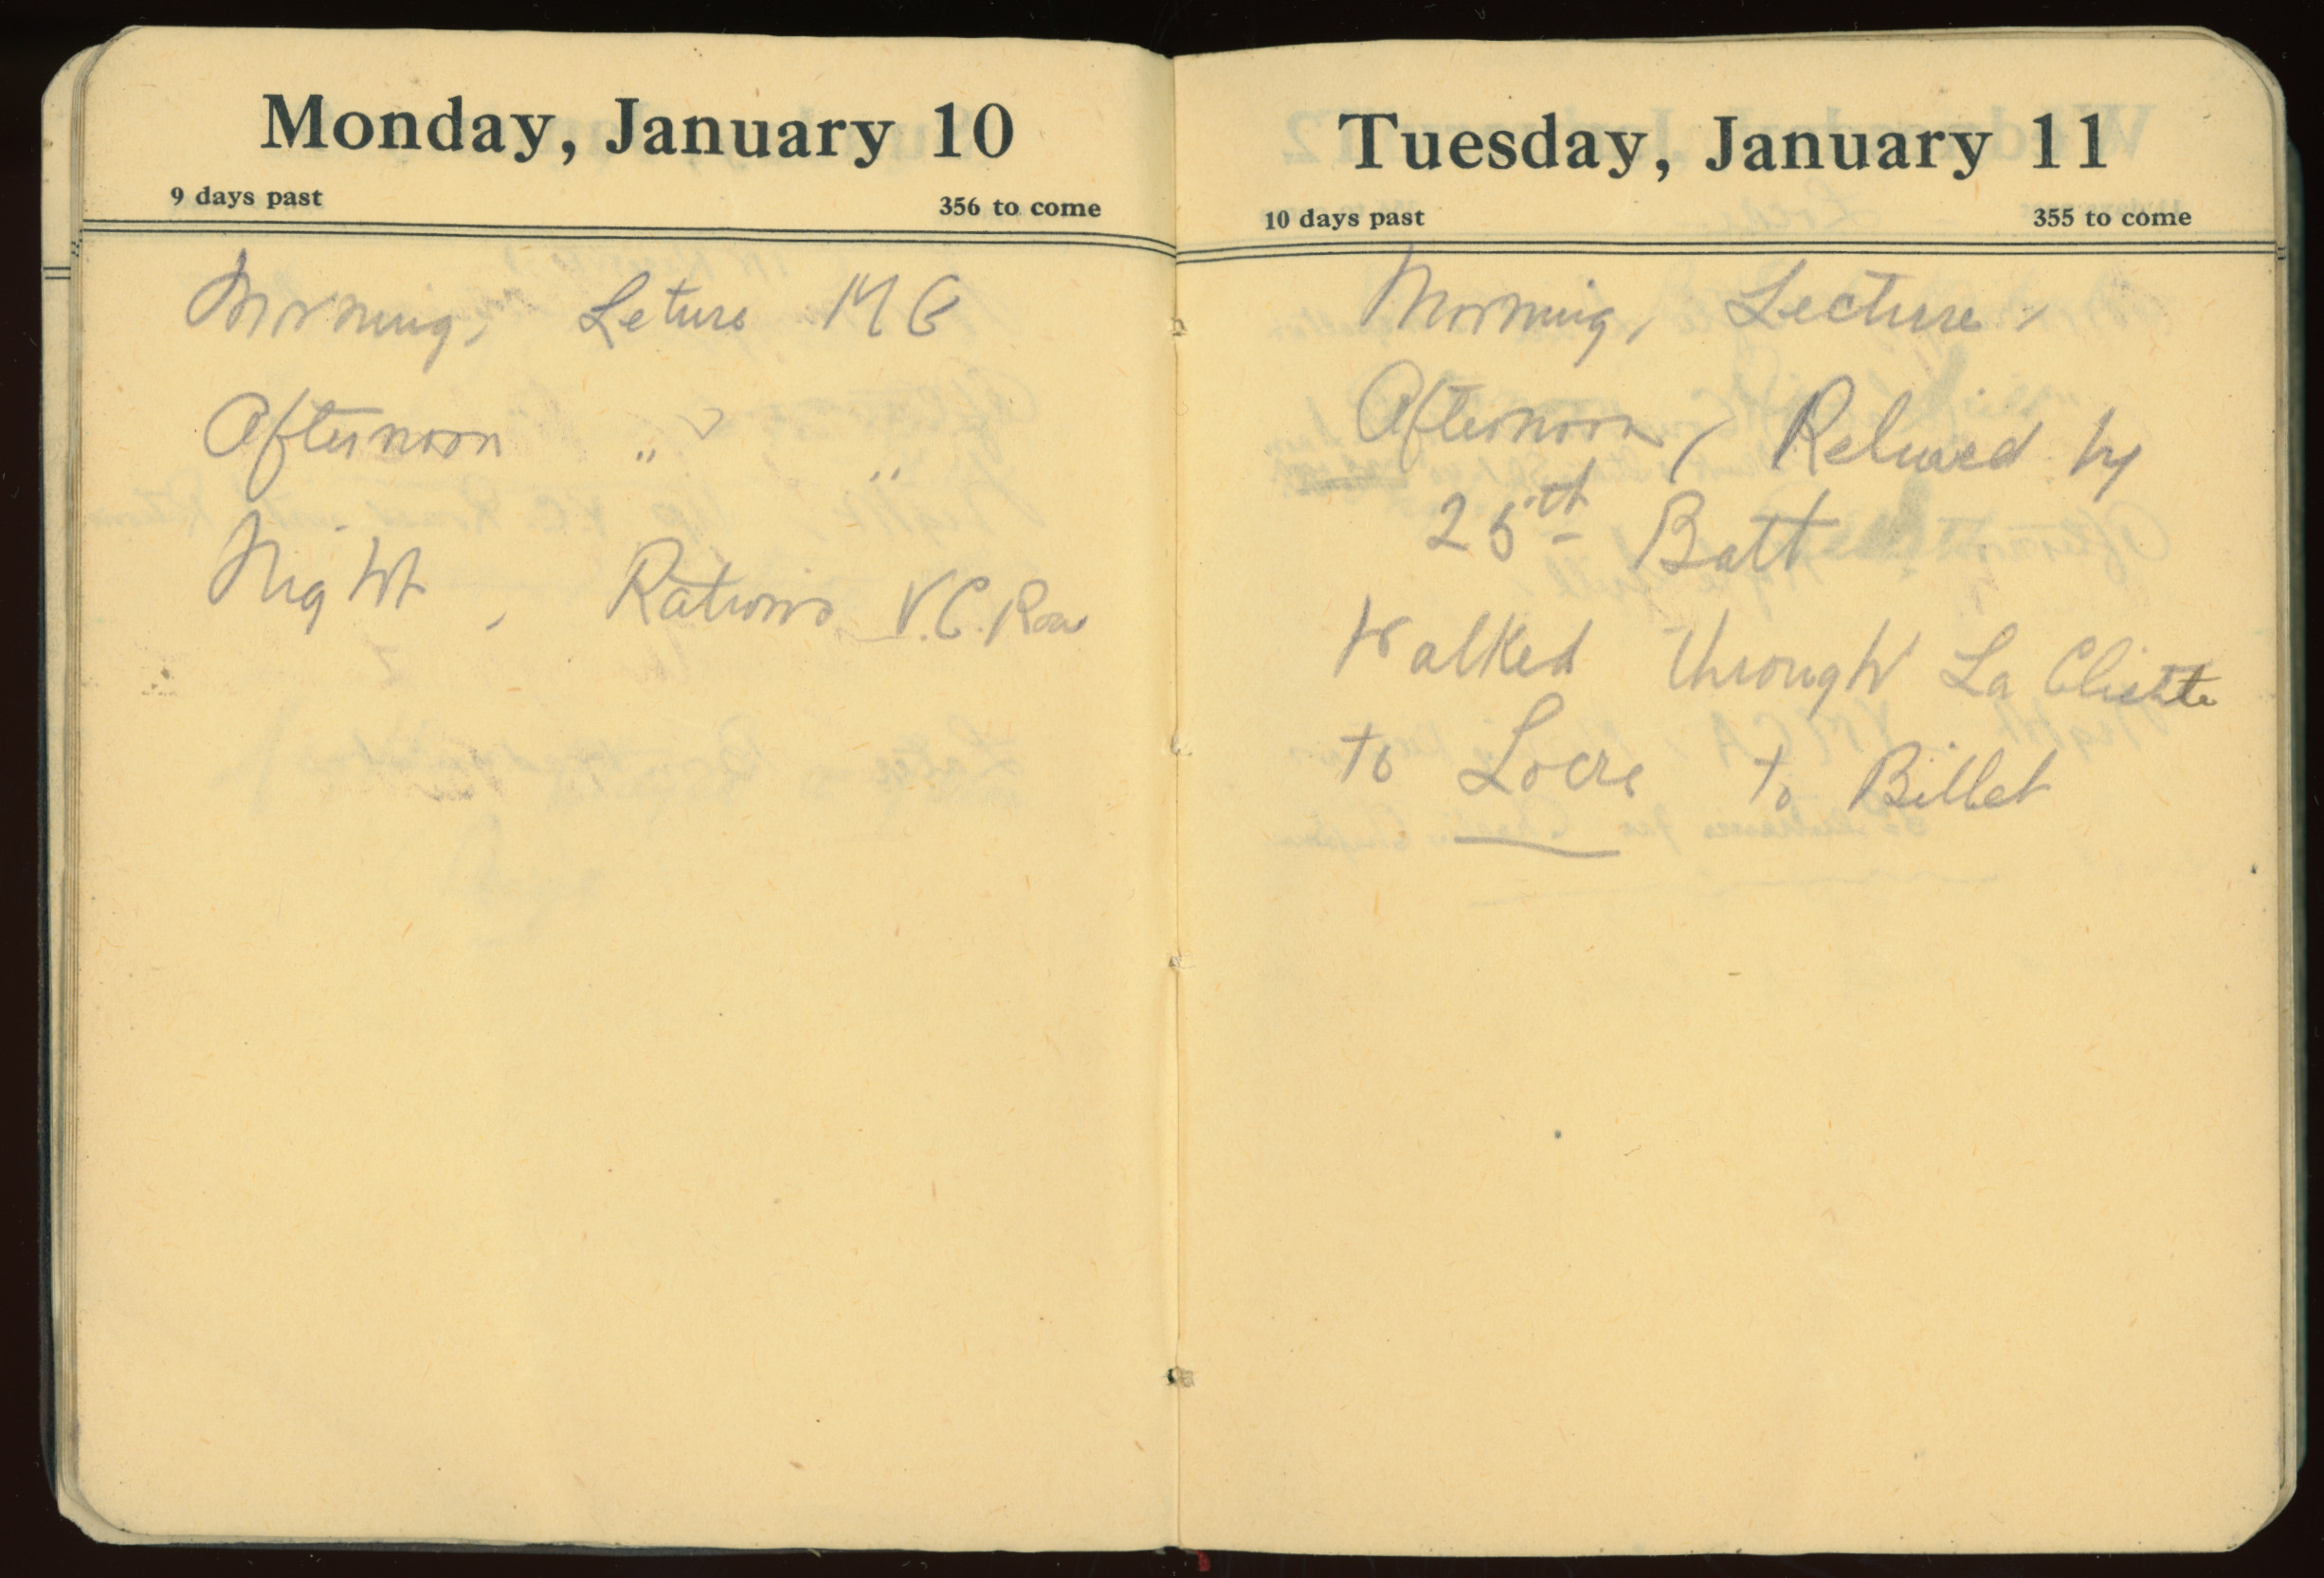 Monday, January 10
9 days past 356 to come
Morning, Leture M G
Afternoon " "
Night, Rations V.C. Road
Tuesday, January 11
10 days past 355 to come
Morning, Lecture,
Afternoon, Relieved by
25th Batt
Walked through La Clytte
to Locre to Billet